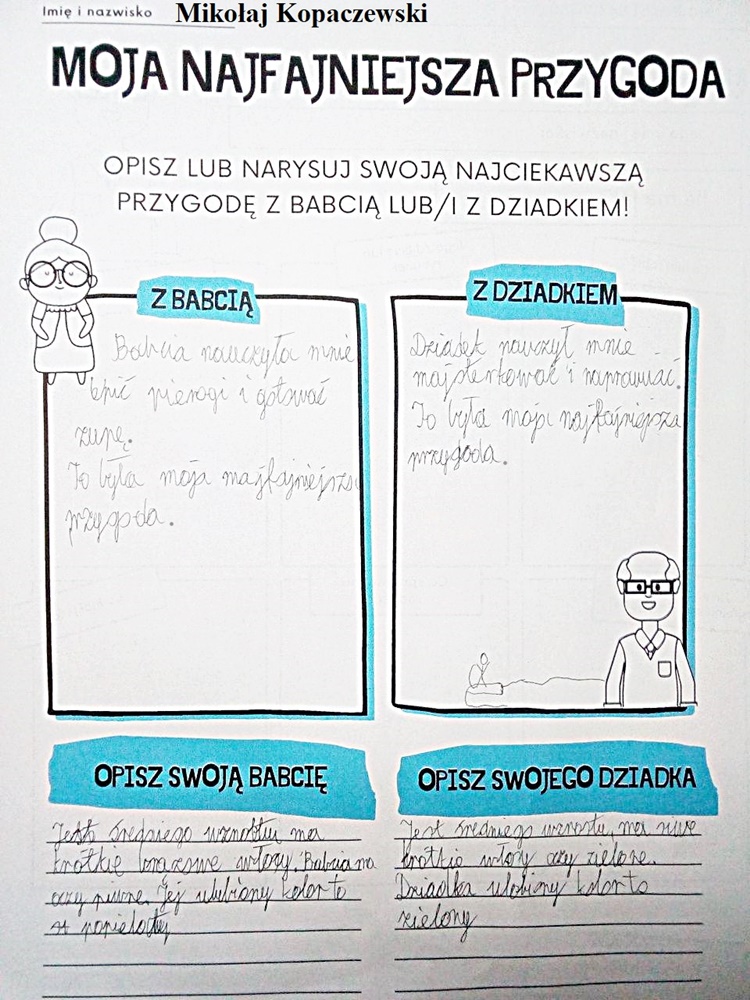 Imię i nazwisko Mikołaj Kopaczewski
MOJA NAJFAJNIEJSZA PRZYGODA
OPISZ LUB NARYSUJ SWOJĄ NAJCIEKAWSZĄ
PRZYGODĘ Z BABCIĄ LUB/I Z DZIADKIEM!
Z BABCIĄ
Babcia nauczyła mnie
lepić pierogi i gotować
zupę.
To była moja majfajniejsza
przygoda.
Z DZIADKIEM
Dziadek nauczył mnie
majsterkować i naprawiać.
To była moja najfajniejsza
przygoda.
OPISZ SWOJĄ BABCIĘ
Jest średniego wzrostu ma
krótkie brązowe włosy. Babcia ma
oczy piwne. Jej ulubiony kolor to
popielaty
OPISZ SWOJEGO DZIADKA
Jest średniego wzrostu, ma siwe
krótkie włosy oczy zielone.
Dziadka ulubiony kolor to
zielony